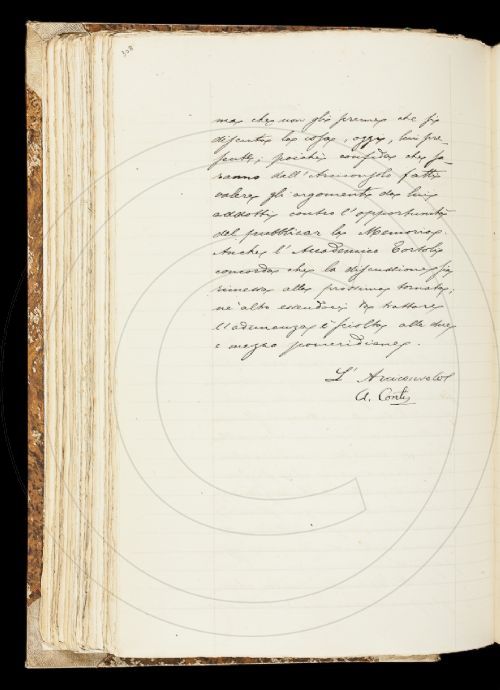 308
ma che non gli preme che si
discuta la cosa, oggi, lui pre-
sente; poichè confida che sa-
ranno dall'Arciconsolo fatti
valere gli argomenti da lui
addotti contro l'opportunità
del pubblicar la Memoria.
Anche l'Accademico Tortoli
concorda che la discussione sia
rimessa alla prossima tornata;
nè altro essendovi da trattare
l'adunanza è sciolta alle due
e mezzo pomeridiane.
L'Arciconsolo
A. Conti